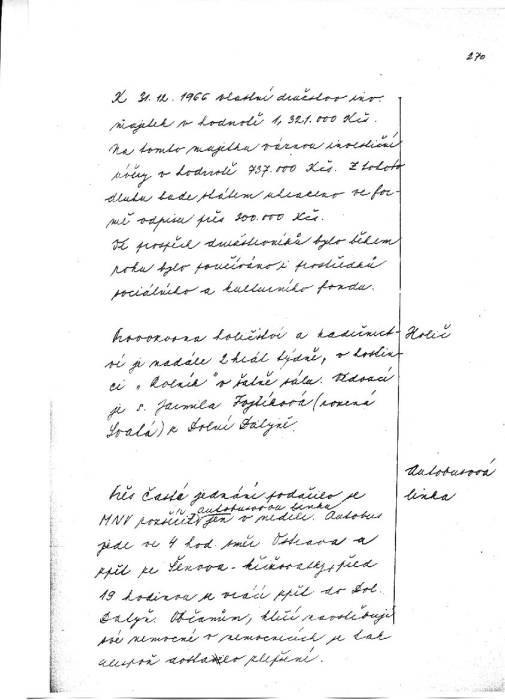 270
K 31. 12. 1966 vlastní družstvo jmě.
majetek v hodnotě 1,321.000 Kčs.
Na tomto majetku váznou investiční
účty v hodnotě 737.000 Kčs. Z tohoto
dluhu bude státem uhrazeno ve for-
mě odpisu přes 300.000 Kčs.
Ve prospěch družstevníků bylo během
roku bylo používáno i prostředků
sociálního a kulturního fondu.
Provozovna holičství a kadeřnict-
ví je nadále 2 krát týdně, v hostin-
ci „Rolník" v šatně sálu. Vedoucí
je s. Jarmila Fojtíková (rozená
) z Dolní Datyně.
Holič
Přes časté jednání podařilo se
MNV rozšířit autobusovou linku
jen v neděli. Autobus
jede ve 4 hod. směr Ostrava a
zpět ze Šenova - před
19 hodinou se vrací zpět do Dol.
Datyň. Občanům, kteří navštěvují
své nemocné v nemocnicích je tak
alespoň dostalo zlepšení.
Autobusová
linka